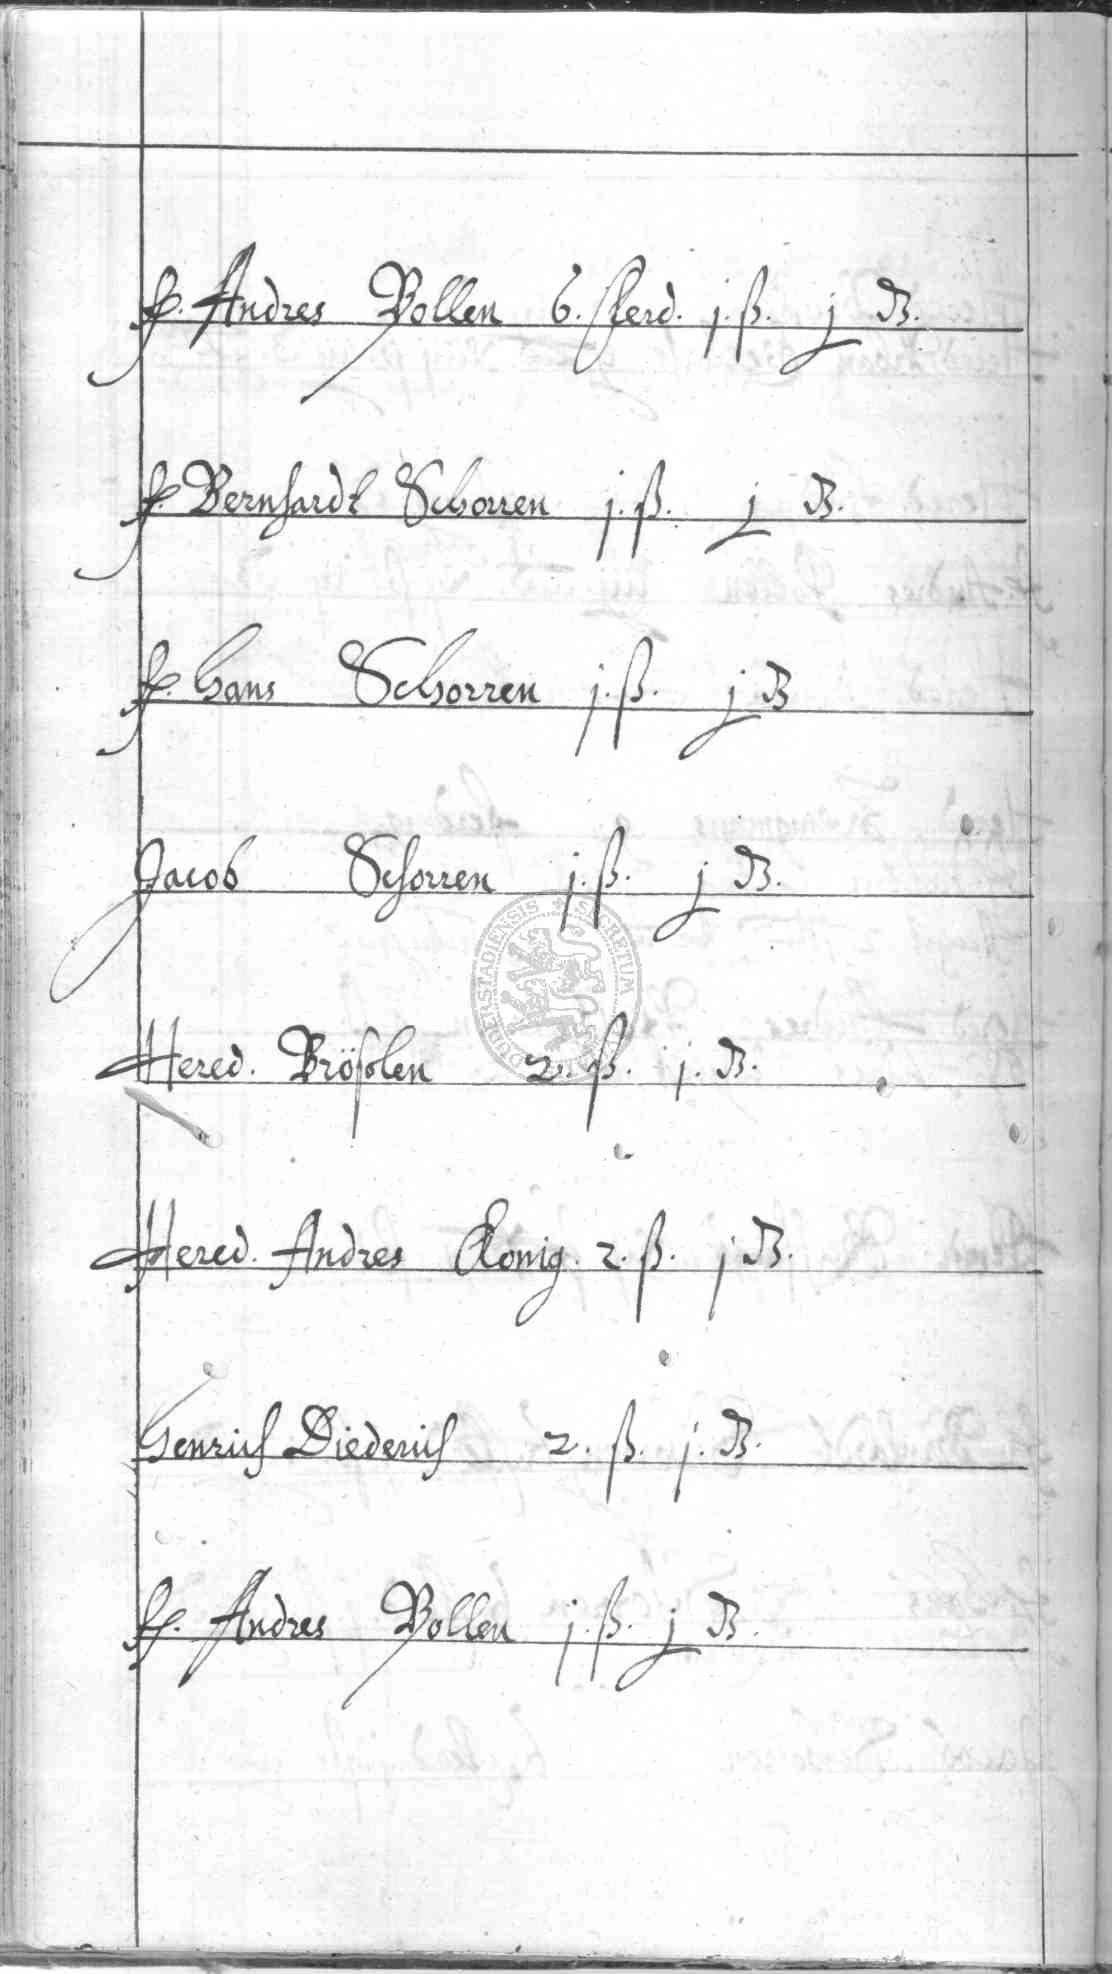 H. Andres Bollen 6. Pferd. j. ß. j B.
H. Bernhardt Schorren j. ß. j B.
H. Hans Schorren j. ß. j B
Jacob Schorren j. ß. j B.
SIGILLUM DUDERSTADIENSIS SECRETUM
Hered. 2. ß. j. B.
Hered. Andres König. 2. ß. j B.
Henrich Diederich 2. ß. j. B.
H. Andres Bollen j. ß. j B.